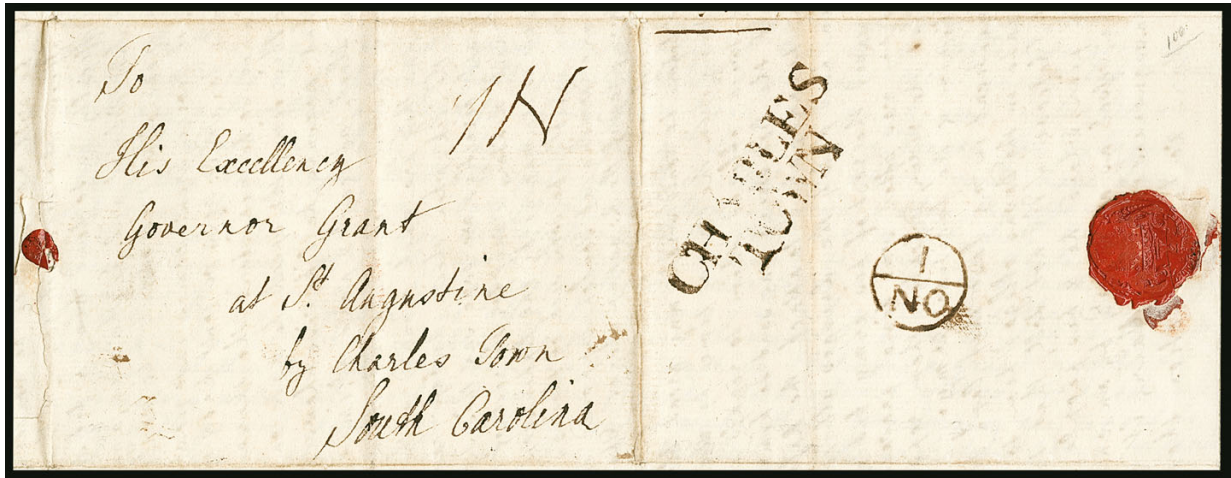 To
His Excellency
Governor Grant
at St. Augustine
by Charles Town
South Carolina
1N
CHARLES
TOWN
1
NO
100